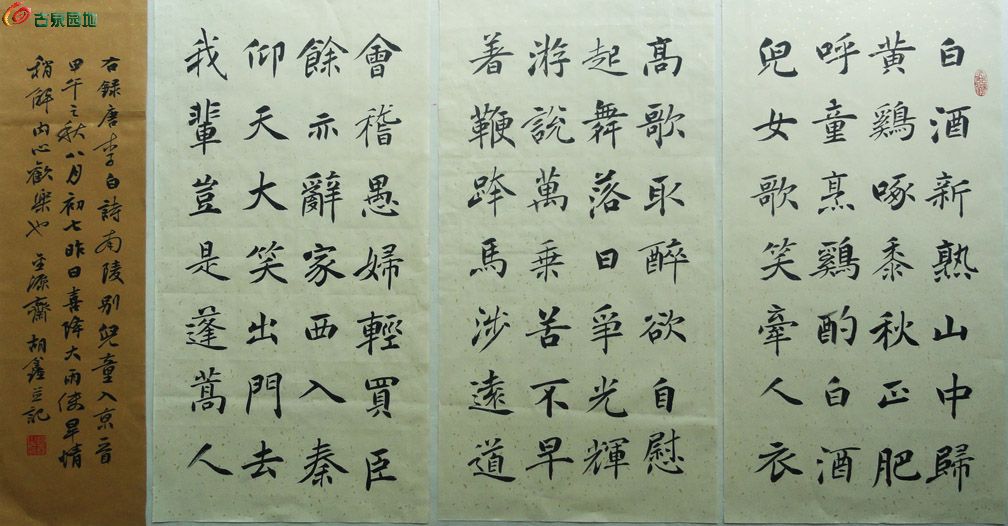 白酒新熟山中歸
黄鷄啄黍秋正肥
呼童烹鷄酌白酒
兒女歌笑牽人衣
高歌取醉欲自慰
起舞落日爭光輝
游說萬乗苦不早
著鞭跨馬涉遠道
會稽愚婦輕買臣
餘亦辭家西入秦
仰天大笑出門去
我輩豈是蓬蒿人
右錄唐李白詩南陵别兒童入京一首
甲午之秋八月初七昨日喜降大雨使旱情
稍解内心歡樂也 胡鑫并記
古泉园地